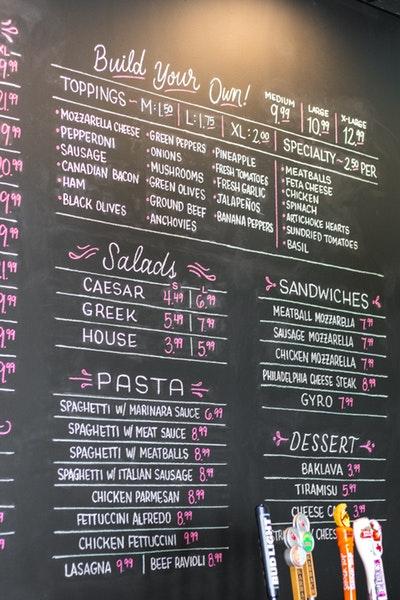 XL
9.99
21.99
9.99
9.99
20.99
9.99
9.99
1.99
9.99
9.99
9.99
Build Your Own!
MEDIUM 9.99 | LARGE 10.99 | X-LARGE 12.99
TOPPINGS~ M: 1.50 | L: 1.75 | XL: 2.00 | SPECIALTY~ 2.50 PER
•MOZZARELLA CHEESE
•PEPPERONI
•SAUSAGE
•CANADIAN BACON
•HAM
•BLACK OLIVES
•GREEN PEPPERS
•ONIONS
•MUSHROOMS
•GREEN OLIVES
•GROUND BEEF
•ANCHOVIES
•PINEAPPLE
•FRESH TOMATOES
•FRESH GARLIC
•JALAPEÑOS
•BANANA PEPPERS
•MEATBALLS
•FETA CHEESE
•CHICKEN
•SPINACH
•ARTICHOKE HEARTS
•SUNDRIED TOMATOES
•BASIL
Salads
S L
CAESAR 4.49 | 6.99
GREEK 5.49 | 7.99
HOUSE 3.99 | 5.99
PASTA
SPAGHETTI W/ MARINARA SAUCE 6.99
SPAGHETTI W/ MEAT SAUCE 8.99
SPAGHETTI W/ MEATBALLS 8.99
SPAGHETTI W/ ITALIAN SAUSAGE 8.99
CHICKEN PARMESAN 8.99
FETTUCCINI ALFREDO 8.99
CHICKEN FETTUCCINI 9.99
LASAGNA 9.99 | BEEF RAVIOLI 8.99
SANDWICHES
MEATBALL MOZZARELLA 7.99
SAUSAGE MOZZARELLA 7.99
CHICKEN MOZZARELLA 7.99
PHILADELPHIA CHEESE STEAK 8.99
GYRO 7.99
DESSERT
BAKLAVA 3.99
TIRAMISU 5.99
CHEESE
BUD LIGHT